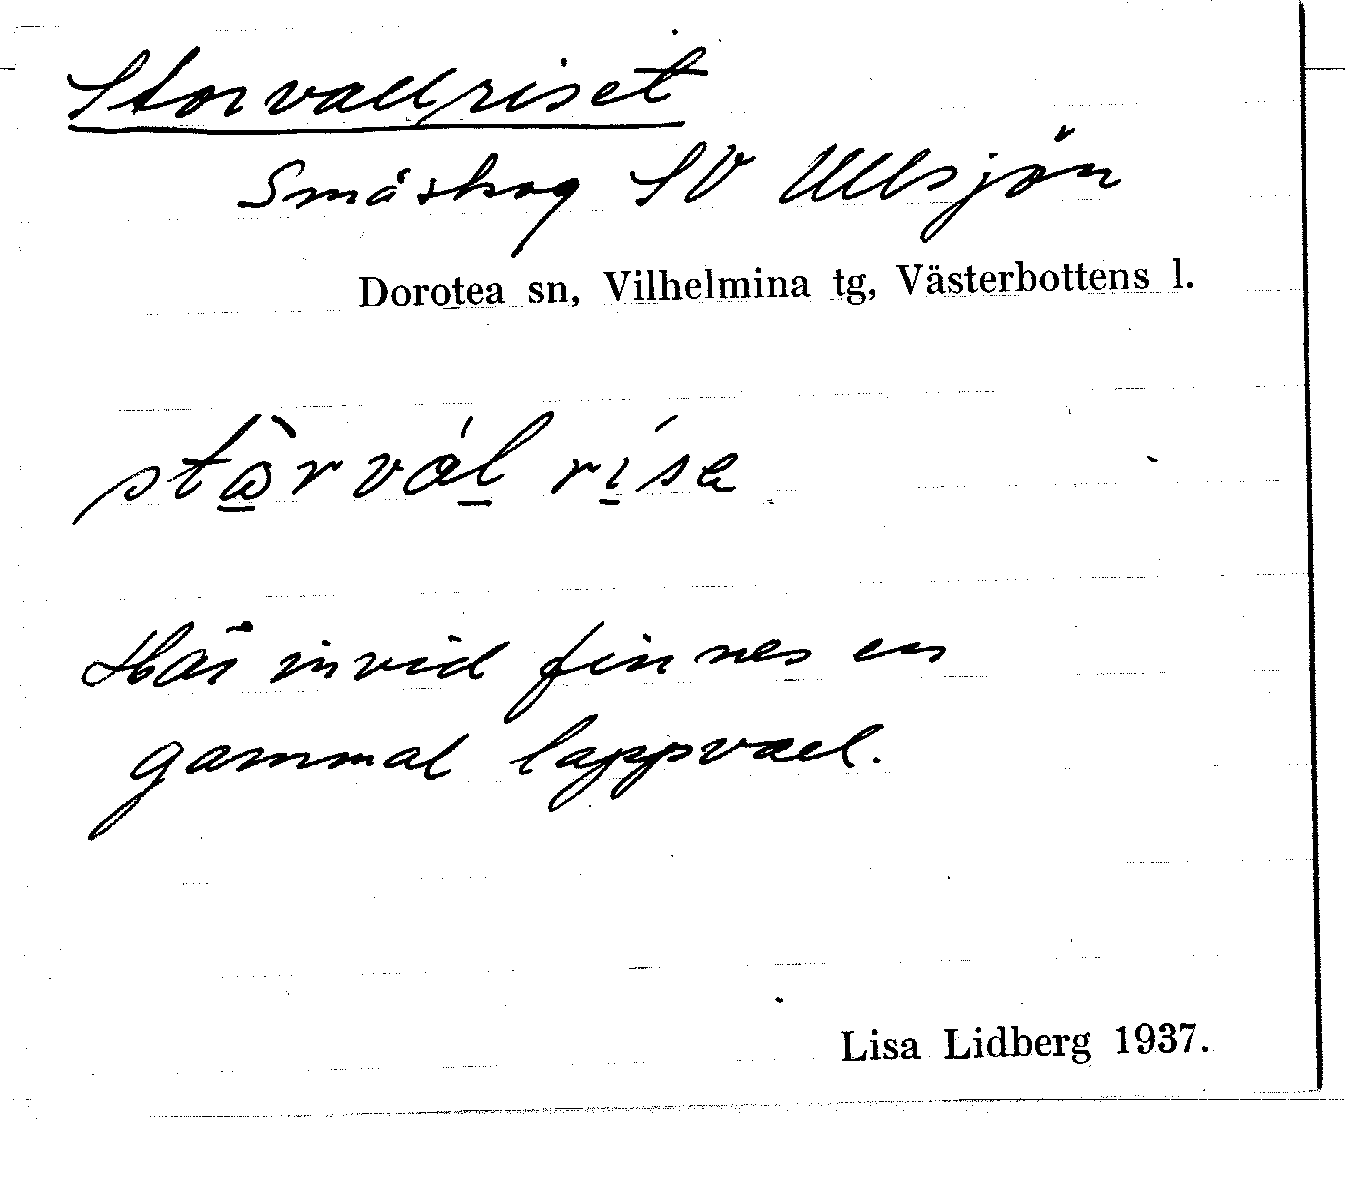 Storvallriset
Småskog SV Ullsjön
Dorotea sn, Vilhelmina tg, Västerbottens l.
Här invid finnes en
gammal lappvall.
Lisa Lidberg 1937.